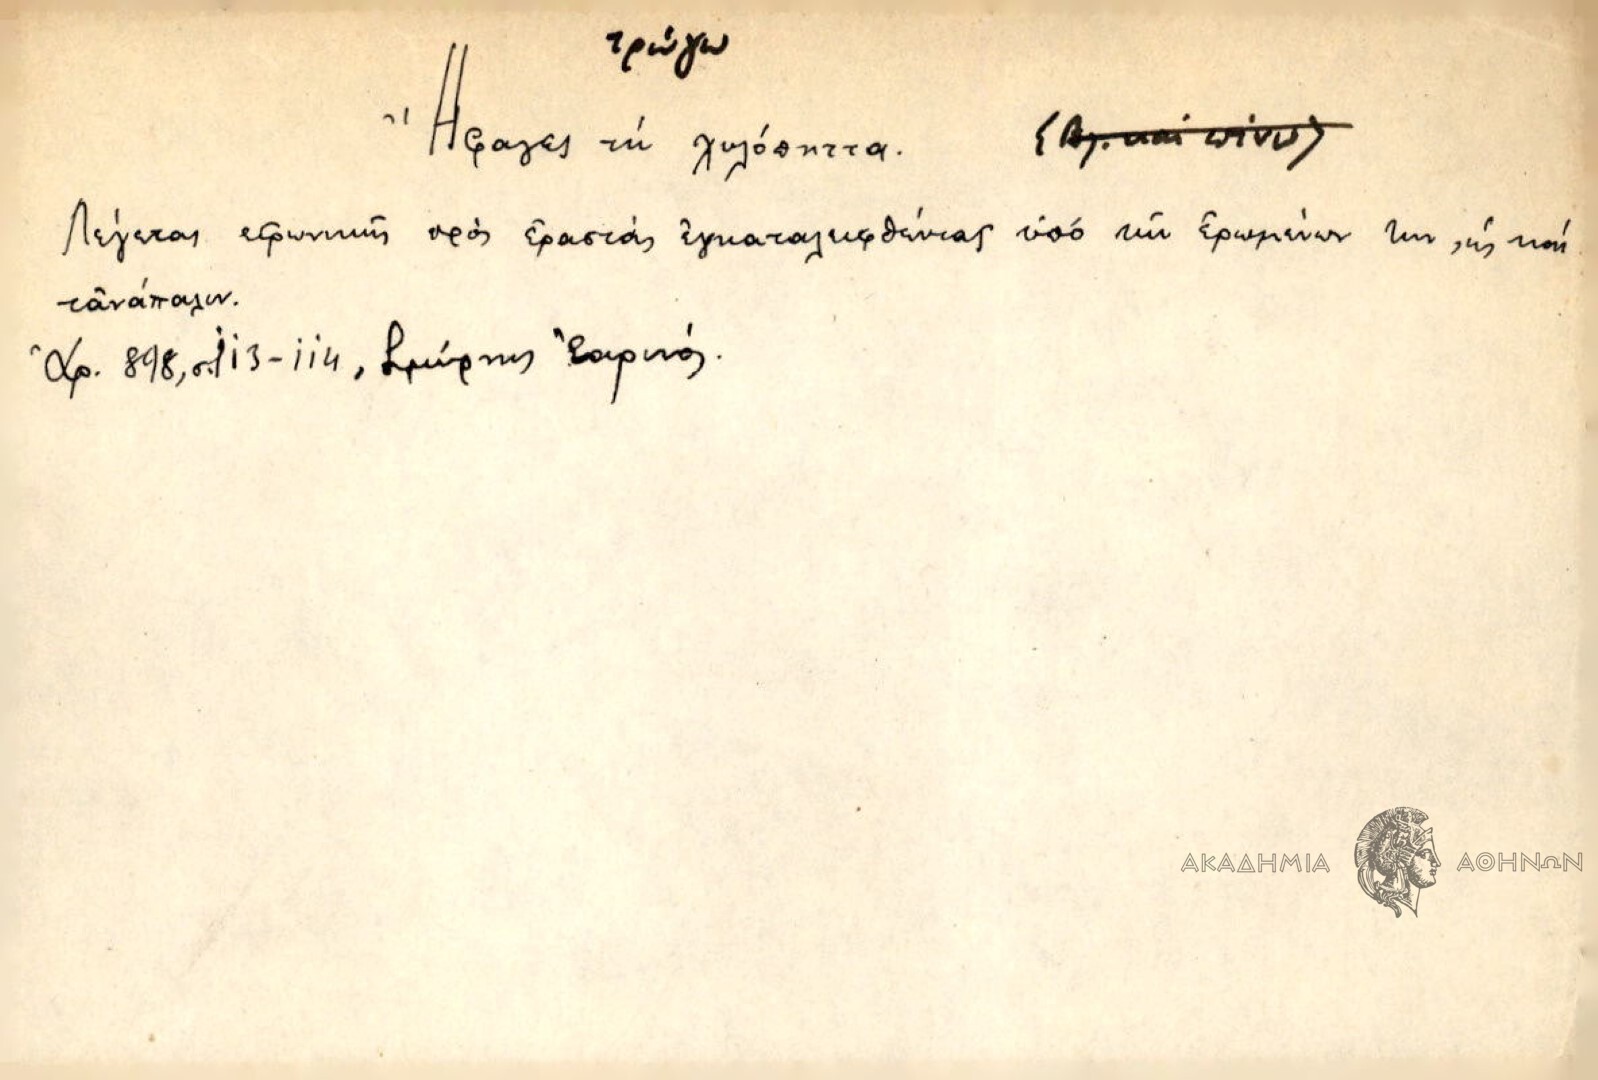 τρώγω
Ἤφαγες τὴ χυλόπηττα. (Βλ. καὶ πίνω)
Λέγεται εἰρωνικῶς πρὸς ἐραστὰς ἐγκαταλειφθέντας ὑπὸ τῶν ἐρωμένων των, ὡς καὶ
τἀνάπαλιν.
Χρ. 898, σ. 113-114, Σμύρνης
ΑΚΑΔΗΜΙΑ ΑΘΗΝΩΝ